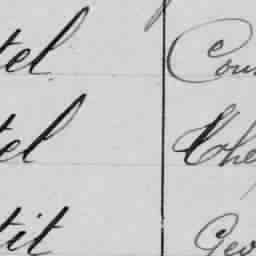 tel Cou
tel Che
tit Geo